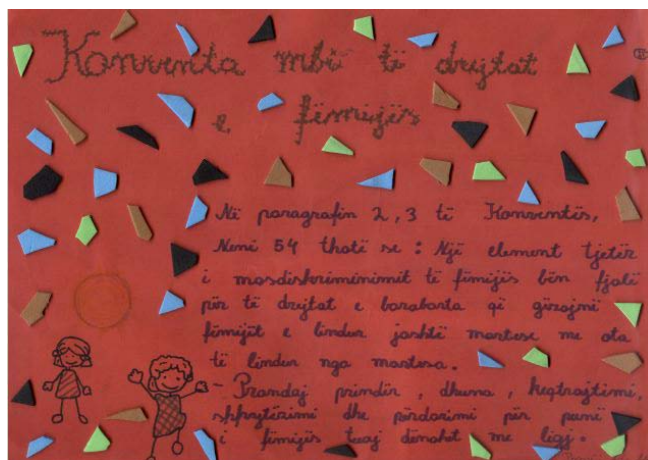 Konventa mbi të drejtat
e fëmijës
Në paragrafin 2,3 të Konventës,
Neni 54 thotë se: Një element tjetër
i mosdiskriminimit të fëmijës bën fjalë
për të drejtat e barabarta që gëzojnë
fëmijët e lindur jashtë martese me ata
të lindur nga martesa.
- Prandaj prindër, dhuna, keqtrajtimi,
shfrytëzimi dhe përdorimi për punë
i fëmijës tuaj dënohet me ligj.